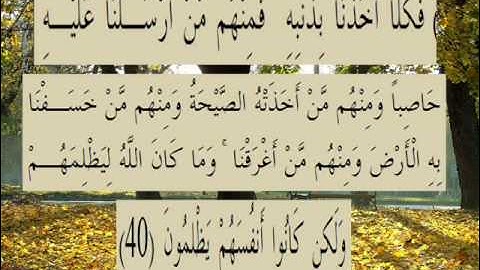 ) فَكُلًّا أَخَذْنَا بِذَنْبِهِ فَمِنْهُم مَّنْ أَرْسَلْنَا عَلَيْهِ
حَاصِباً وَمِنْهُم مَّنْ أَخَذَتْهُ الصَّيْحَةُ وَمِنْهُم مَّنْ خَسَفْنَا
بِهِ الْأَرْضَ وَمِنْهُم مَّنْ أَغْرَقْنَا ۚ وَمَا كَانَ اللَّهُ لِيَظْلِمَهُمْ
وَلَكِن كَانُوا أَنفُسَهُمْ يَظْلِمُونَ (40)